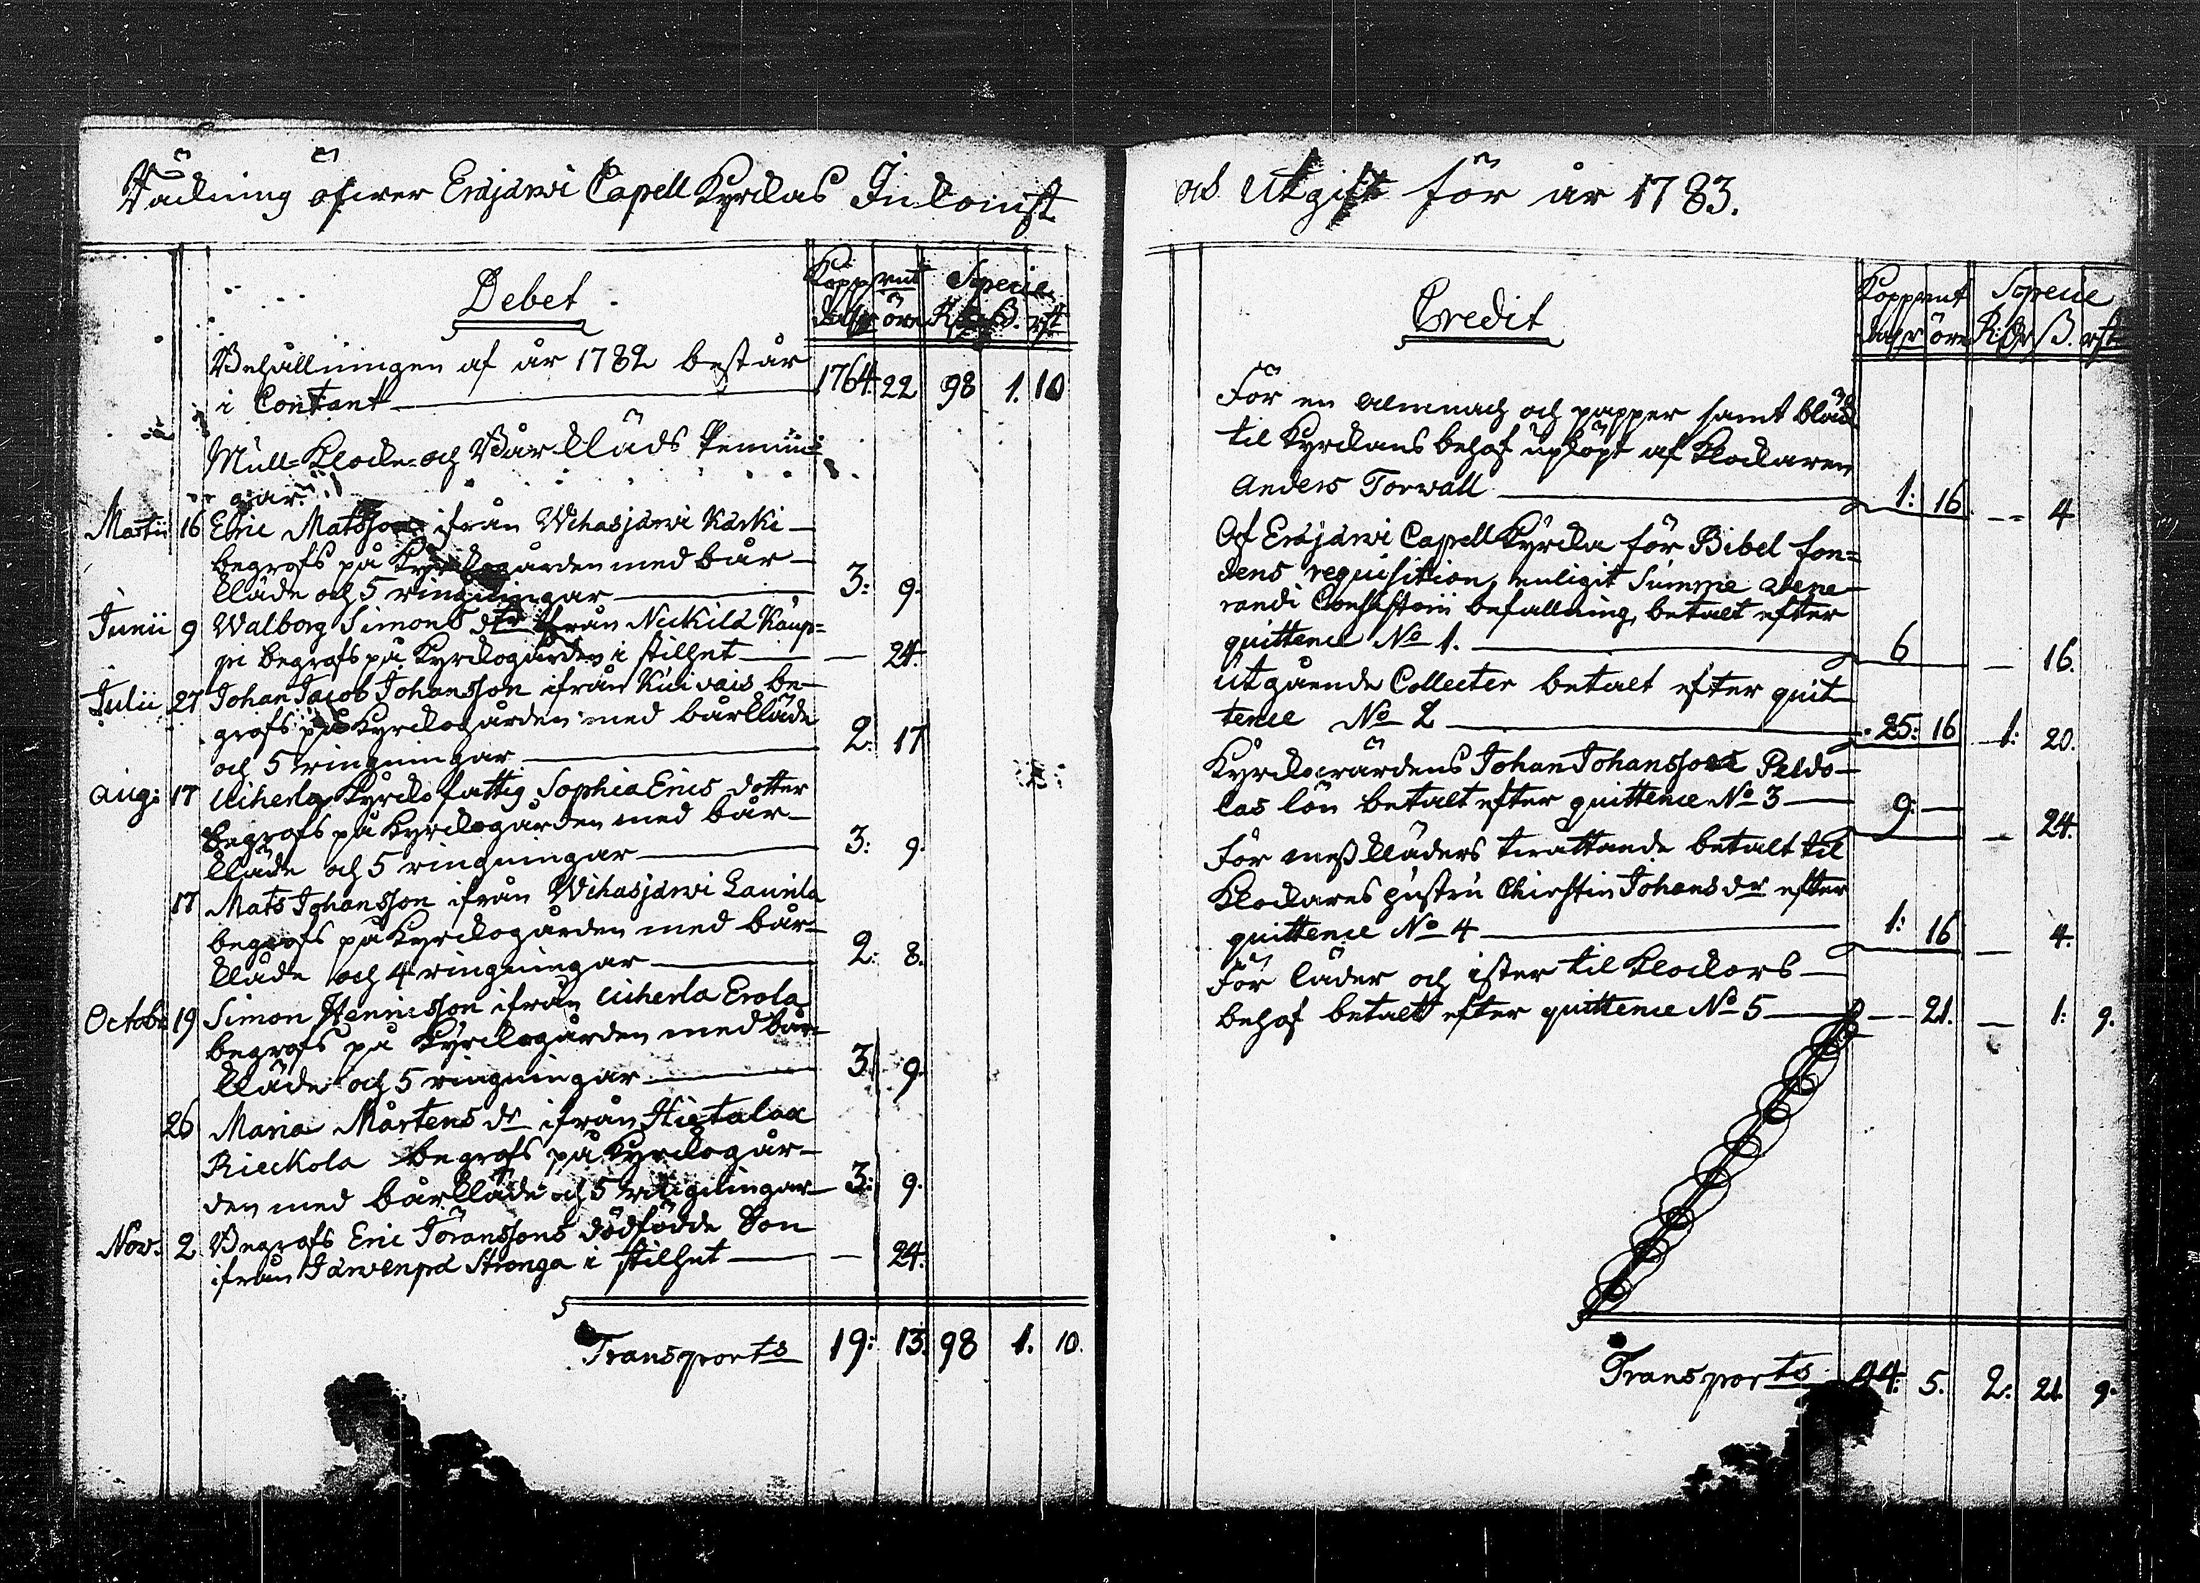 Räckning öfwer Eräjärwi Capell Kyrckas Inkomst
Debet
Koppmt Specie
dahlr öre Rdr ß. rst
Behållningen af år 1782 består
i Contant 1764: 22 98 1. 10
Mull= Klocke= och Bårkläds Pennin=
gar.
Martii 16 Eric Matsson ifrån Wihasjärwi Kärki
begrofs på Kyrckogården med bår-
kläde och 5 ringningar 3: 9.
Junii 9 Walborg Simons dr ifrån Neckilä Kaup=
pi begrofs på Kyrckogården i stillhet — 24.
Julii 27 Johan Jacob Johansson ifrån Kuivais be-
grofs på Kyrckogården med bårkläde
och 5 ringningar 2: 17
Aug: 17 Uiherla Kyrcko fattig Sophia Erics dotter
begrofs på Kyrckogården med bår-
kläde och 5 ringningar 3: 9.
17 Mats Johansson ifrån Wihasjärwi Laurila
begrofs på Kyrckogården med bår-
kläde och 4 ringningar 2: 8.
Octobr 19 Simon Henricsson ifrån Uiherla Erola
begrofs på Kyrckogården med bår-
kläde och 5 ringningar 3: 9.
26 Maria Mårtens dr ifrån Hietalax
Rieckola begrofs på Kyrckogår-
den med bårkläde och 5 ringningar 3: 9.
Nov: 2 Begrofs Eric Jöranssons dödfödde Son
ifrån Järwenpä Stronga i stillhet — 24.
Transports 19: 13. 98 1. 10.
och Utgift för år 1783.
Credit
Koppmt Specie
dahlr öre R:dr ß. rst
För en almnach och papper samt bläck
til Kyrckans behof upköpt af Klockaren
Anders Torwall 1: 16 — 4
Af Eräjärwi Capell Kyrcka för Bibel fon=
dens requisition, enligit Summe vene-
randi Consistorii befallning, betalt efter
quittence No 1. 6 — 16.
Utgående Collecter betalt efter quit-
tence No 2 25: 16 1: 20.
Kyrckowärdens Johan Johansson Peldo-
las lön betalt efter quittence No 3 9: — — 24.
För mess kläders twättande betalt til
Klockares hustru Chirstin Johans dr efter
quittence No 4 1: 16 — 4.
För läder och ister til Klockors
behof betalt efter quittence No 5 — 21. — 1: 9.
Transports 44: 5. 2: 21. 9.